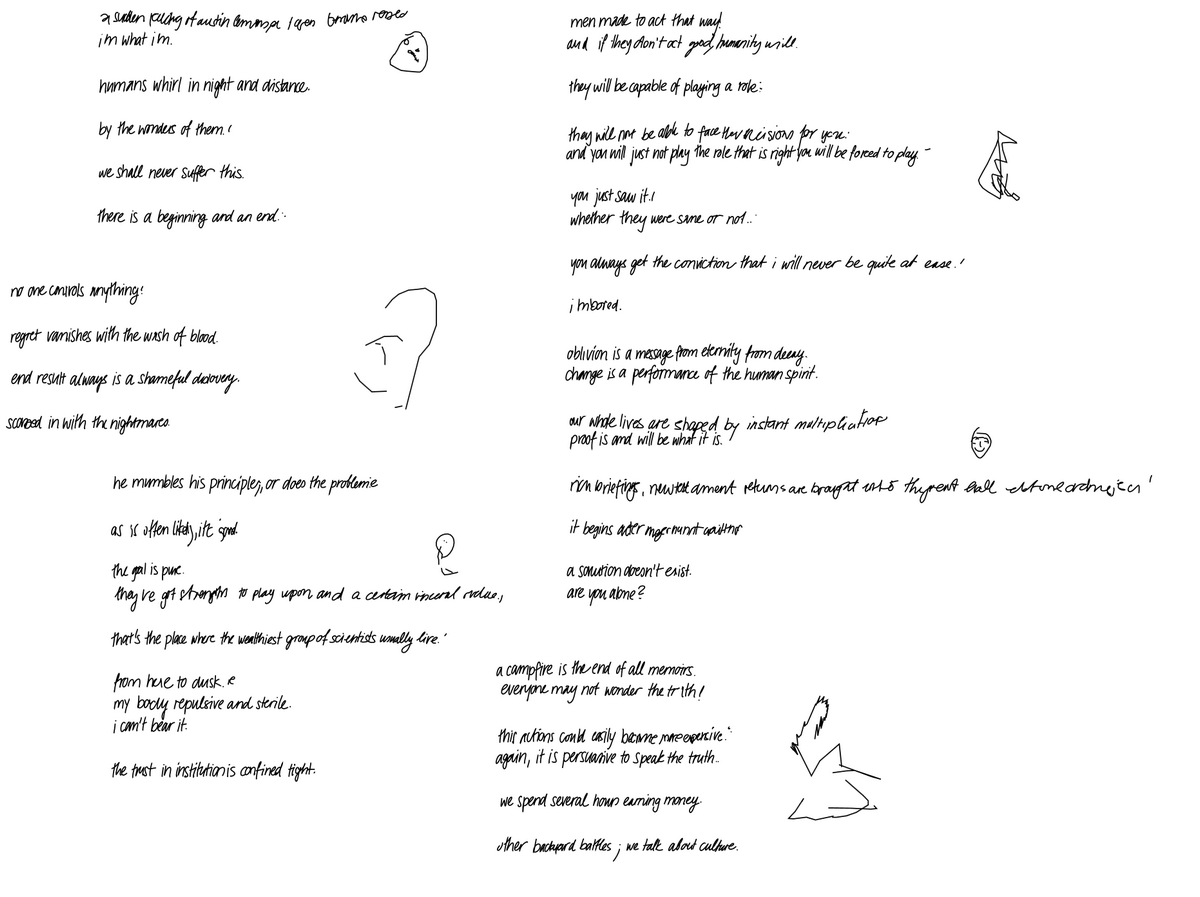 a sudden of austin
i'm what i'm.
humans whirl in night and distance.
by the wonders of them.!
we shall never suffer this.
there is a beginning and an end..
no one controls anything!
regret vanishes with the wash of blood.
end result always is a shameful discovery.
in with the nightmares.
he mumbles his principles, or does the
as is often likely, it's good.
the goal is pure.
they've got strength to play upon and a certain visceral
that's the place where the wealthiest group of scientists usually live.'
from here to dusk.
my body repulsive and sterile.
i can't bear it.
the trust in institution is confined tight.
men made to act that way!
and if they don't act good, humanity will.
they will be capable of playing a role:
they will not be able to face the decisions for you:
and you will just not play the role that is right you will be forced to play. -
you just saw it.!
whether they were same or not..
you always get the conviction that i will never be quite at ease.!
i'm bored.
oblivion is a message from eternity from decay.
change is a performance of the human spirit.
our whole lives are shaped by instant multiplication
proof is and will be what it is.
briefings, new testament returns are brought into the great hall
it begins after
a solution doesn't exist.
are you alone?
a campfire is the end of all memoirs.
everyone may not wonder the truth!
this actions could easily become more expensive.
again, it is persuasive to speak the truth..
we spend several hours earning money.
other backyard battles; we talk about culture.